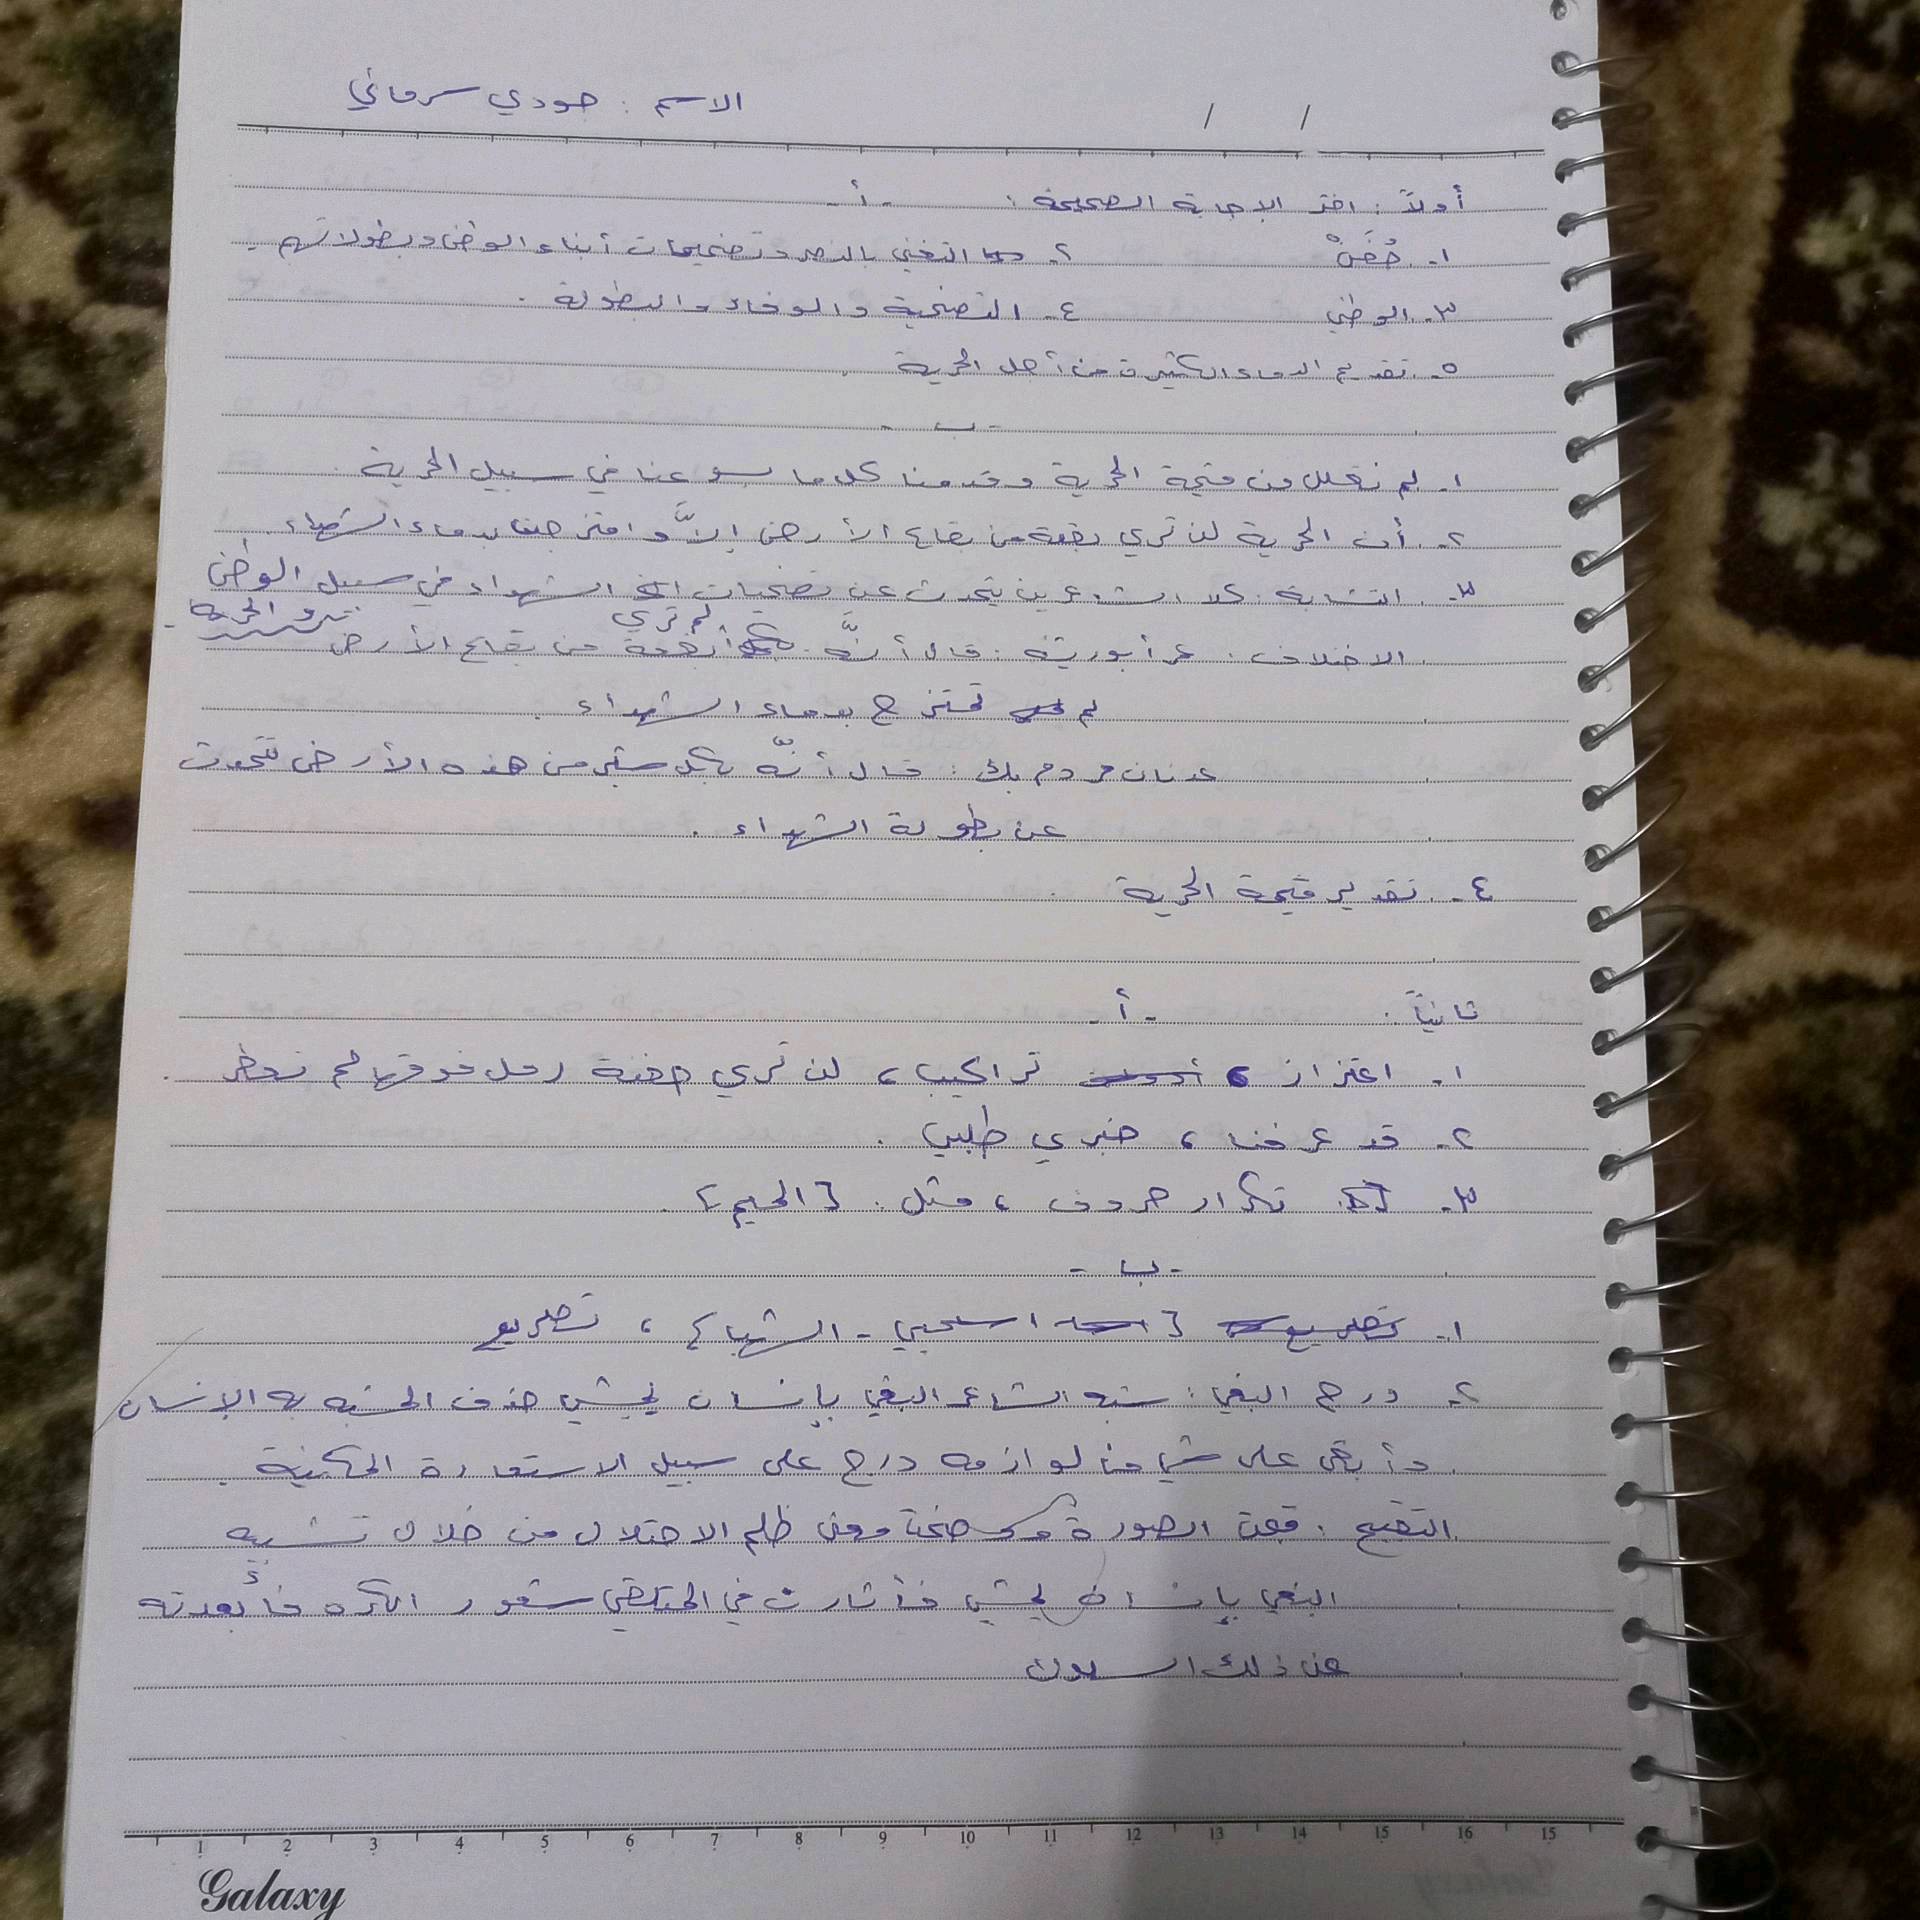 الاسم : جودي سرماني
/ /
أولاً : اختر الإجابة الصحيحة : - أ -
١- خُفِضَ ٢- التغني بالنصر وتضحيات أبناء الوطن وبطولاته .
٣- الوطني ٤- التضحية والوفاء والبطولة .
٥- تقديم الدماء الكثيرة من أجل الحرية .
- ب -
١- لم نقلل من قيمة الحرية وقدمنا كل ما بوسعنا في سبيل الحرية .
٢- أن الحرية لن تري بقعة من بقاع الأرض إلَّا وامتزجت بدماء الشهداء .
٣- التشابه : كلا الشاعرين يتحدث عن تضحيات الشهداء في سبيل الوطن
والحرية .
الاختلاف : عمر أبو ريشة : قال أنَّه لم تري بقعة من بقاع الأرض
لم تمتزج بدماء الشهداء .
عدنان مردم بك : قال أنَّه بكل شبر من هذه الأرض تتحدث
عن بطولة الشهداء .
٤- تقدير قيمة الحرية .
ثانياً : - أ -
١- اعتزاز ، تراكيب ، لن تري حفنة رمل فوقها لم تعطر .
٢- قد عرفنا ، خبري طلبي .
٣- تكرار حروف ، مثل : [الميم] .
- ب -
١- [اسحبي - الشهب] ، تصريع
٢- درج البغي : شبه الشاعر البغي بإنسان يمشي حذف المشبه به الإنسان
وأبقى على شي من لوازمه درج على سبيل الاستعارة المكنية .
التقبيح : قبحت الصورة معنى ظلم الاحتلال من خلال تشبيه
البغي بإنسان يمشي فأثارت في المتلقي شعور الكره فأبعدته
عن ذلك السلوك
1 2 3 4 5 6 7 8 9 10 11 12 13 14 15 16 15
Galaxy